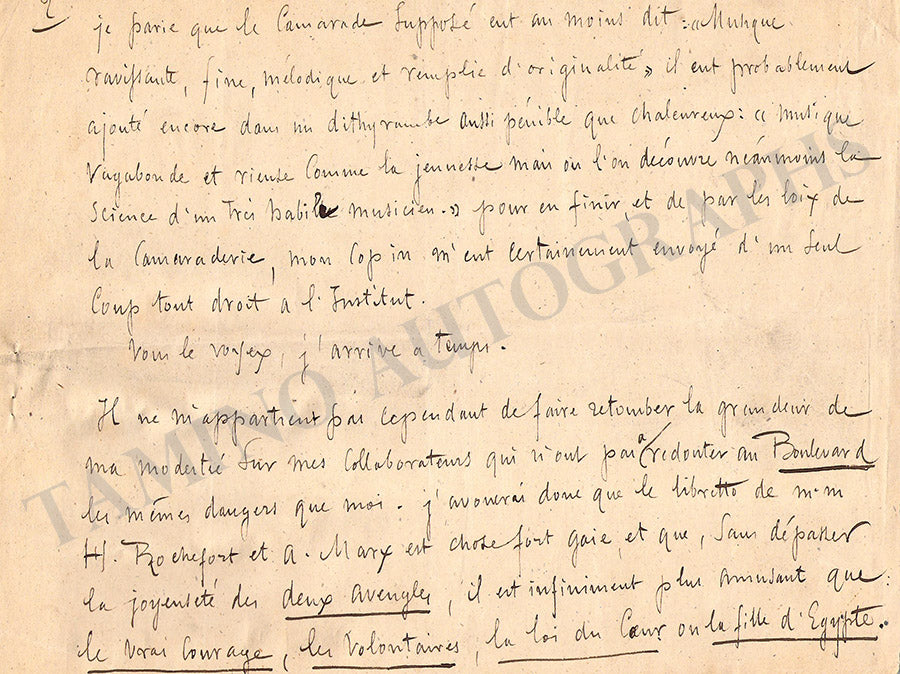 2
je parie que le Camarade Supposé eut au moins dit : « Musique
ravissante, fine, mélodique et remplie d'originalité » il eut probablement
ajouté encore dans un dithyrambe aussi pénible que chaleureux : « musique
Vagabonde et rieuse Comme la jeunesse mais ou l'on découvre néanmoins la
Science d'un Très habile musicien. » pour en finir et de par les loix de
la Camaraderie, mon Copin m'eut certainement envoyé d'un Seul
Coup tout droit a l'Institut.
Vous le voyez, j'arrive a temps.
Il ne m'appartient pas cependant de faire retomber la grandeur de
ma modestie Sur mes Collaborateurs qui n'ont pas a redouter au Boulevard
les mêmes dangers que moi. j'avouerai donc que le libretto de m.m
H. Rochefort et A. Marx est chose fort gaie, et que, Sans dépasser
la joyeuseté des deux aveugles, il est infiniment plus amusant que :
le Vrai Courage, les Volontaires, la loi du Cœur ou la fille d'Egypte.
TAMINO AUTOGRAPHS